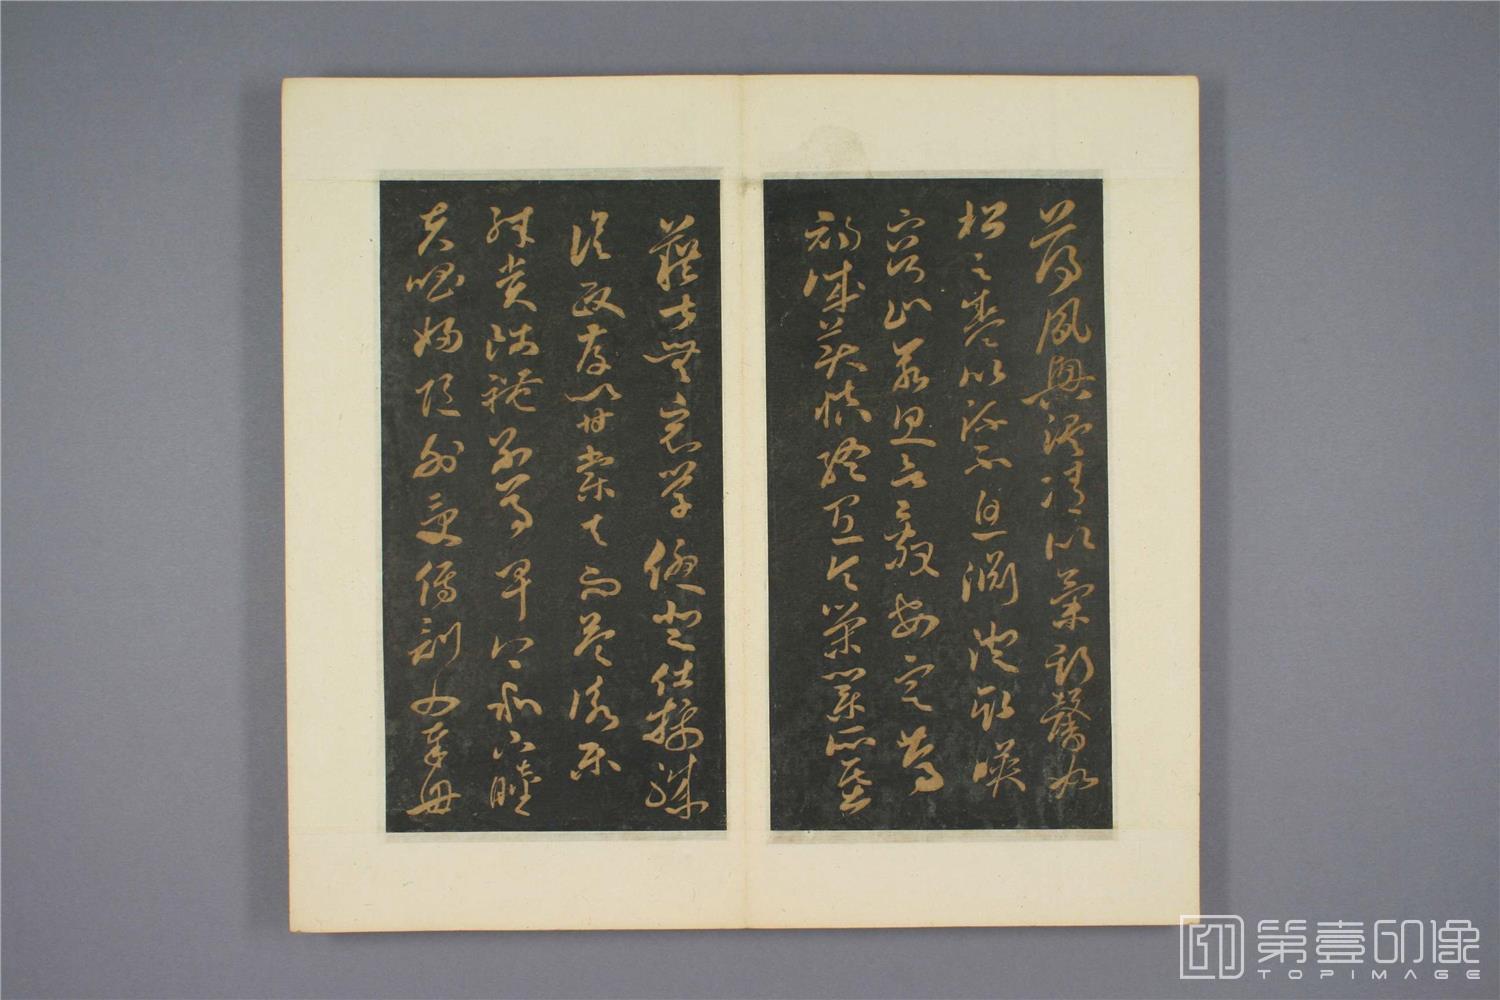 薄夙興溫凊似蘭斯馨如
松之盛川流不息淵澄取暎
容止若思言辭安定篤
初誠美慎終宜令榮業所基
藉甚無竟學優登仕攝職
從政存以甘棠去而益詠樂
殊貴賤禮別尊卑上和下睦
夫唱婦隨外受傅訓入奉母
第壹印像
TOPIMAGE